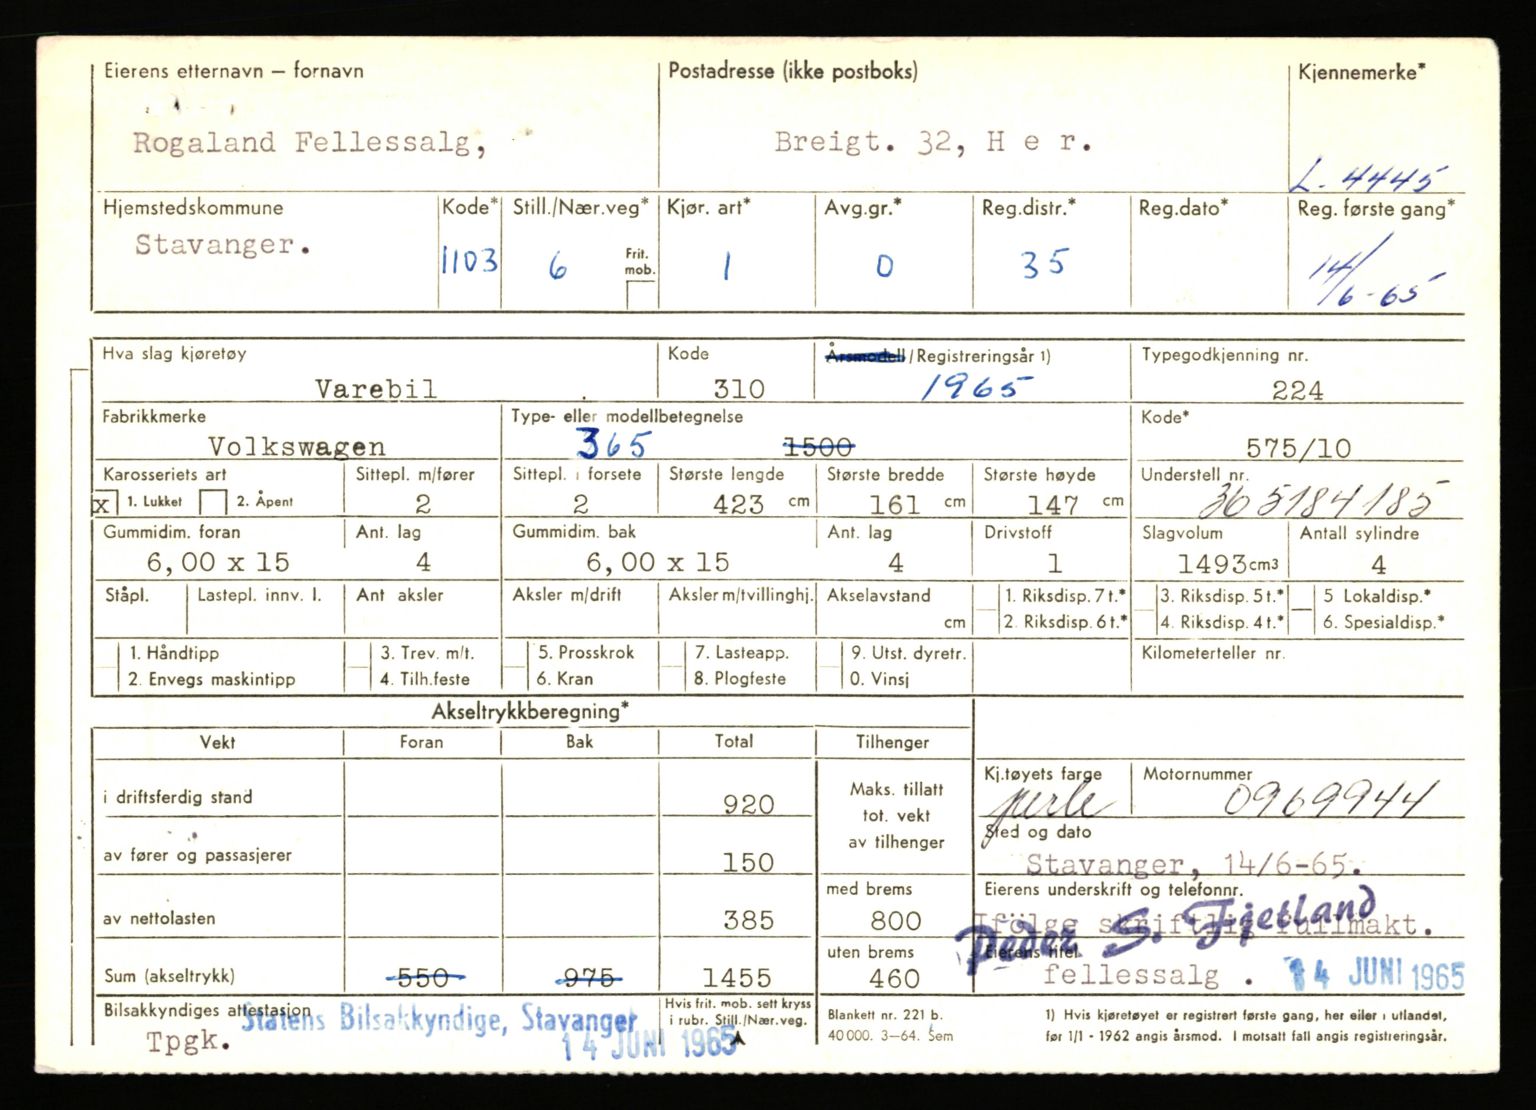 Eierens etternavn – fornavn
Postadresse (ikke postboks)
Kjennemerke*
Rogaland Fellessalg,
Breigt. 32, H e r.
L. 4445
Hjemstedskommune
Kode*
Still./Nær.veg*
Kjør. art*
Avg.gr.*
Reg.distr.*
Reg.dato*
Reg. første gang*
Stavanger.
1103
6
Frit. mob.
1
0
35
14/6-65
Hva slag kjøretøy
Kode
Årsmodell/Registreringsår 1)
Typegodkjenning nr.
Varebil
310
1965
224
Fabrikkmerke
Type- eller modellbetegnelse
Kode*
Volkswagen
365
1500
575/10
Karosseriets art
Sittepl. m/fører
Sittepl. i forsete
Største lengde
Største bredde
Største høyde
Understell nr.
x 1. Lukket
2. Åpent
2
2
423 cm
161 cm
147 cm
365184185
Gummidim. foran
Ant. lag
Gummidim. bak
Ant. lag
Drivstoff
Slagvolum
Antall sylindre
6,00 x 15
4
6,00 x 15
4
1
1493cm3
4
Ståpl.
Lastepl. innv. l.
Ant aksler
Aksler m/drift
Aksler m/tvillinghj.
Akselavstand
cm
1. Riksdisp. 7 t.*
2. Riksdisp. 6 t.*
3. Riksdisp. 5 t.*
4. Riksdisp. 4 t.*
5 Lokaldisp.*
6. Spesialdisp.*
1. Håndtipp
2. Envegs maskintipp
3. Trev. m/t.
4. Tilh.feste
5. Prosskrok
6. Kran
7. Lasteapp.
8. Plogfeste
9. Utst. dyretr.
0. Vinsj
Kilometerteller nr.
Akseltrykkberegning*
Vekt
Foran
Bak
Total
Tilhenger
i driftsferdig stand
920
Maks. tillatt
tot. vekt
av tilhenger
Kj.tøyets farge
perle
Motornummer
0969944
av fører og passasjerer
150
Sted og dato
Stavanger, 14/6-65.
av nettolasten
385
med brems
800
Eierens underskrift og telefonnr.
Ifølge skriftlig fullmakt.
Peder S. Fjetland
Sum (akseltrykk)
550
975
1455
uten brems
460
Eierens titel
fellessalg .
14 JUNI 1965
Bilsakkyndiges attestasjon
Tpgk.
Statens Bilsakkyndige, Stavanger
14 JUNI 1965
Hvis frit. mob. sett kryss
i rubr. Still./Nær.veg.
Blankett nr. 221 b.
40 000. 3–64. Sem
1) Hvis kjøretøyet er registrert første gang, her eller i utlandet,
før 1/1 - 1962 angis årsmod. I motsatt fall angis registreringsår.